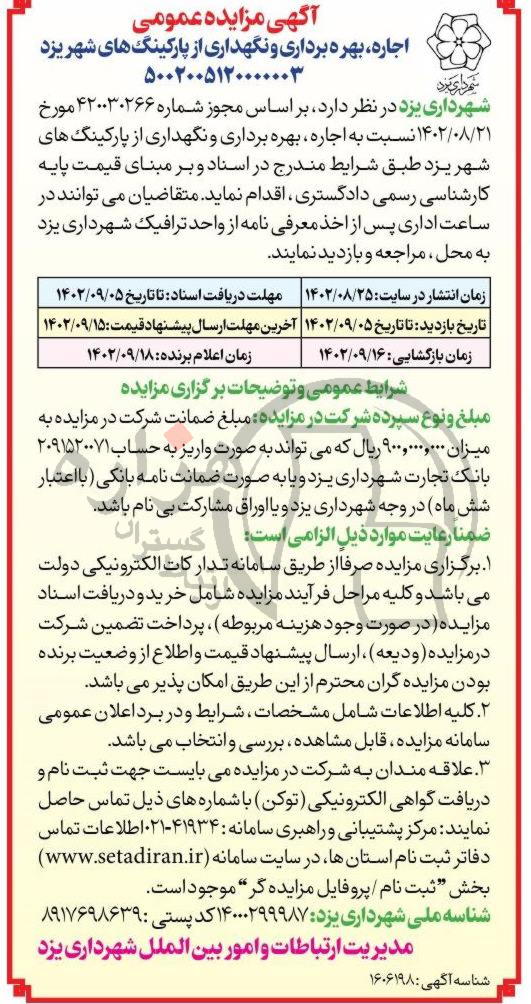 آگهی مزایده عمومی
اجاره، بهره برداری و نگهداری از پارکینگ‌های شهر یزد
۵۰۰۲۰۰۵۱۲۰۰۰۰۰۰۳
شهرداری یزد
شهرداری یزد در نظر دارد، بر اساس مجوز شماره ۴۲۰۰۳۰۲۶۶ مورخ
۱۴۰۲/۰۸/۲۱ نسبت به اجاره، بهره برداری و نگهداری از پارکینگ های
شهر یزد طبق شرایط مندرج در اسناد و بر مبنای قیمت پایه
کارشناسی رسمی دادگستری، اقدام نماید. متقاضیان می توانند در
ساعت اداری پس از اخذ معرفی نامه از واحد ترافیک شهرداری یزد
به محل، مراجعه و بازدید نمایند.
زمان انتشار در سایت: ۱۴۰۲/۰۸/۲۵ مهلت دریافت اسناد: تا تاریخ ۱۴۰۲/۰۹/۰۵
تاریخ بازدید: تا تاریخ ۱۴۰۲/۰۹/۰۵ آخرین مهلت ارسال پیشنهاد قیمت: ۱۴۰۲/۰۹/۱۵
زمان بازگشایی: ۱۴۰۲/۰۹/۱۶ زمان اعلام برنده: ۱۴۰۲/۰۹/۱۸
شرایط عمومی و توضیحات برگزاری مزایده
مبلغ و نوع سپرده شرکت در مزایده: مبلغ ضمانت شرکت در مزایده به
میزان ۹۰۰,۰۰۰,۰۰۰ ریال که می تواند به صورت واریز به حساب ۲۰۹۱۵۲۰۰۷۱
بانک تجارت شهرداری یزد و یا به صورت ضمانت نامه بانکی (با اعتبار
شش ماه) در وجه شهرداری یزد و یا اوراق مشارکت بی نام باشد.
ضمناً رعایت موارد ذیل الزامی است:
۱. برگزاری مزایده صرفا از طریق سامانه تدارکات الکترونیکی دولت
می باشد و کلیه مراحل فرآیند مزایده شامل خرید و دریافت اسناد
مزایده (در صورت وجود هزینه مربوطه)، پرداخت تضمین شرکت
در مزایده (ودیعه)، ارسال پیشنهاد قیمت و اطلاع از وضعیت برنده
بودن مزایده گران محترم از این طریق امکان پذیر می باشد.
۲. کلیه اطلاعات شامل مشخصات، شرایط و در برد اعلان عمومی
سامانه مزایده، قابل مشاهده، بررسی و انتخاب می باشد.
۳. علاقه مندان به شرکت در مزایده می بایست جهت ثبت نام و
دریافت گواهی الکترونیکی (توکن) با شماره های ذیل تماس حاصل
نمایند: مرکز پشتیبانی و راهبری سامانه: ۴۱۹۳۴-۰۲۱ اطلاعات تماس
دفاتر ثبت نام استان ها، در سایت سامانه (www.setadiran.ir)
بخش "ثبت نام / پروفایل مزایده گر" موجود است.
شناسه ملی شهرداری یزد: ۱۴۰۰۰۲۹۹۹۸۷ کد پستی: ۸۹۱۷۶۹۸۶۳۹
مدیریت ارتباطات و امور بین الملل شهرداری یزد
شناسه آگهی: ۱۶۰۶۱۹۸
هزاره
گستران